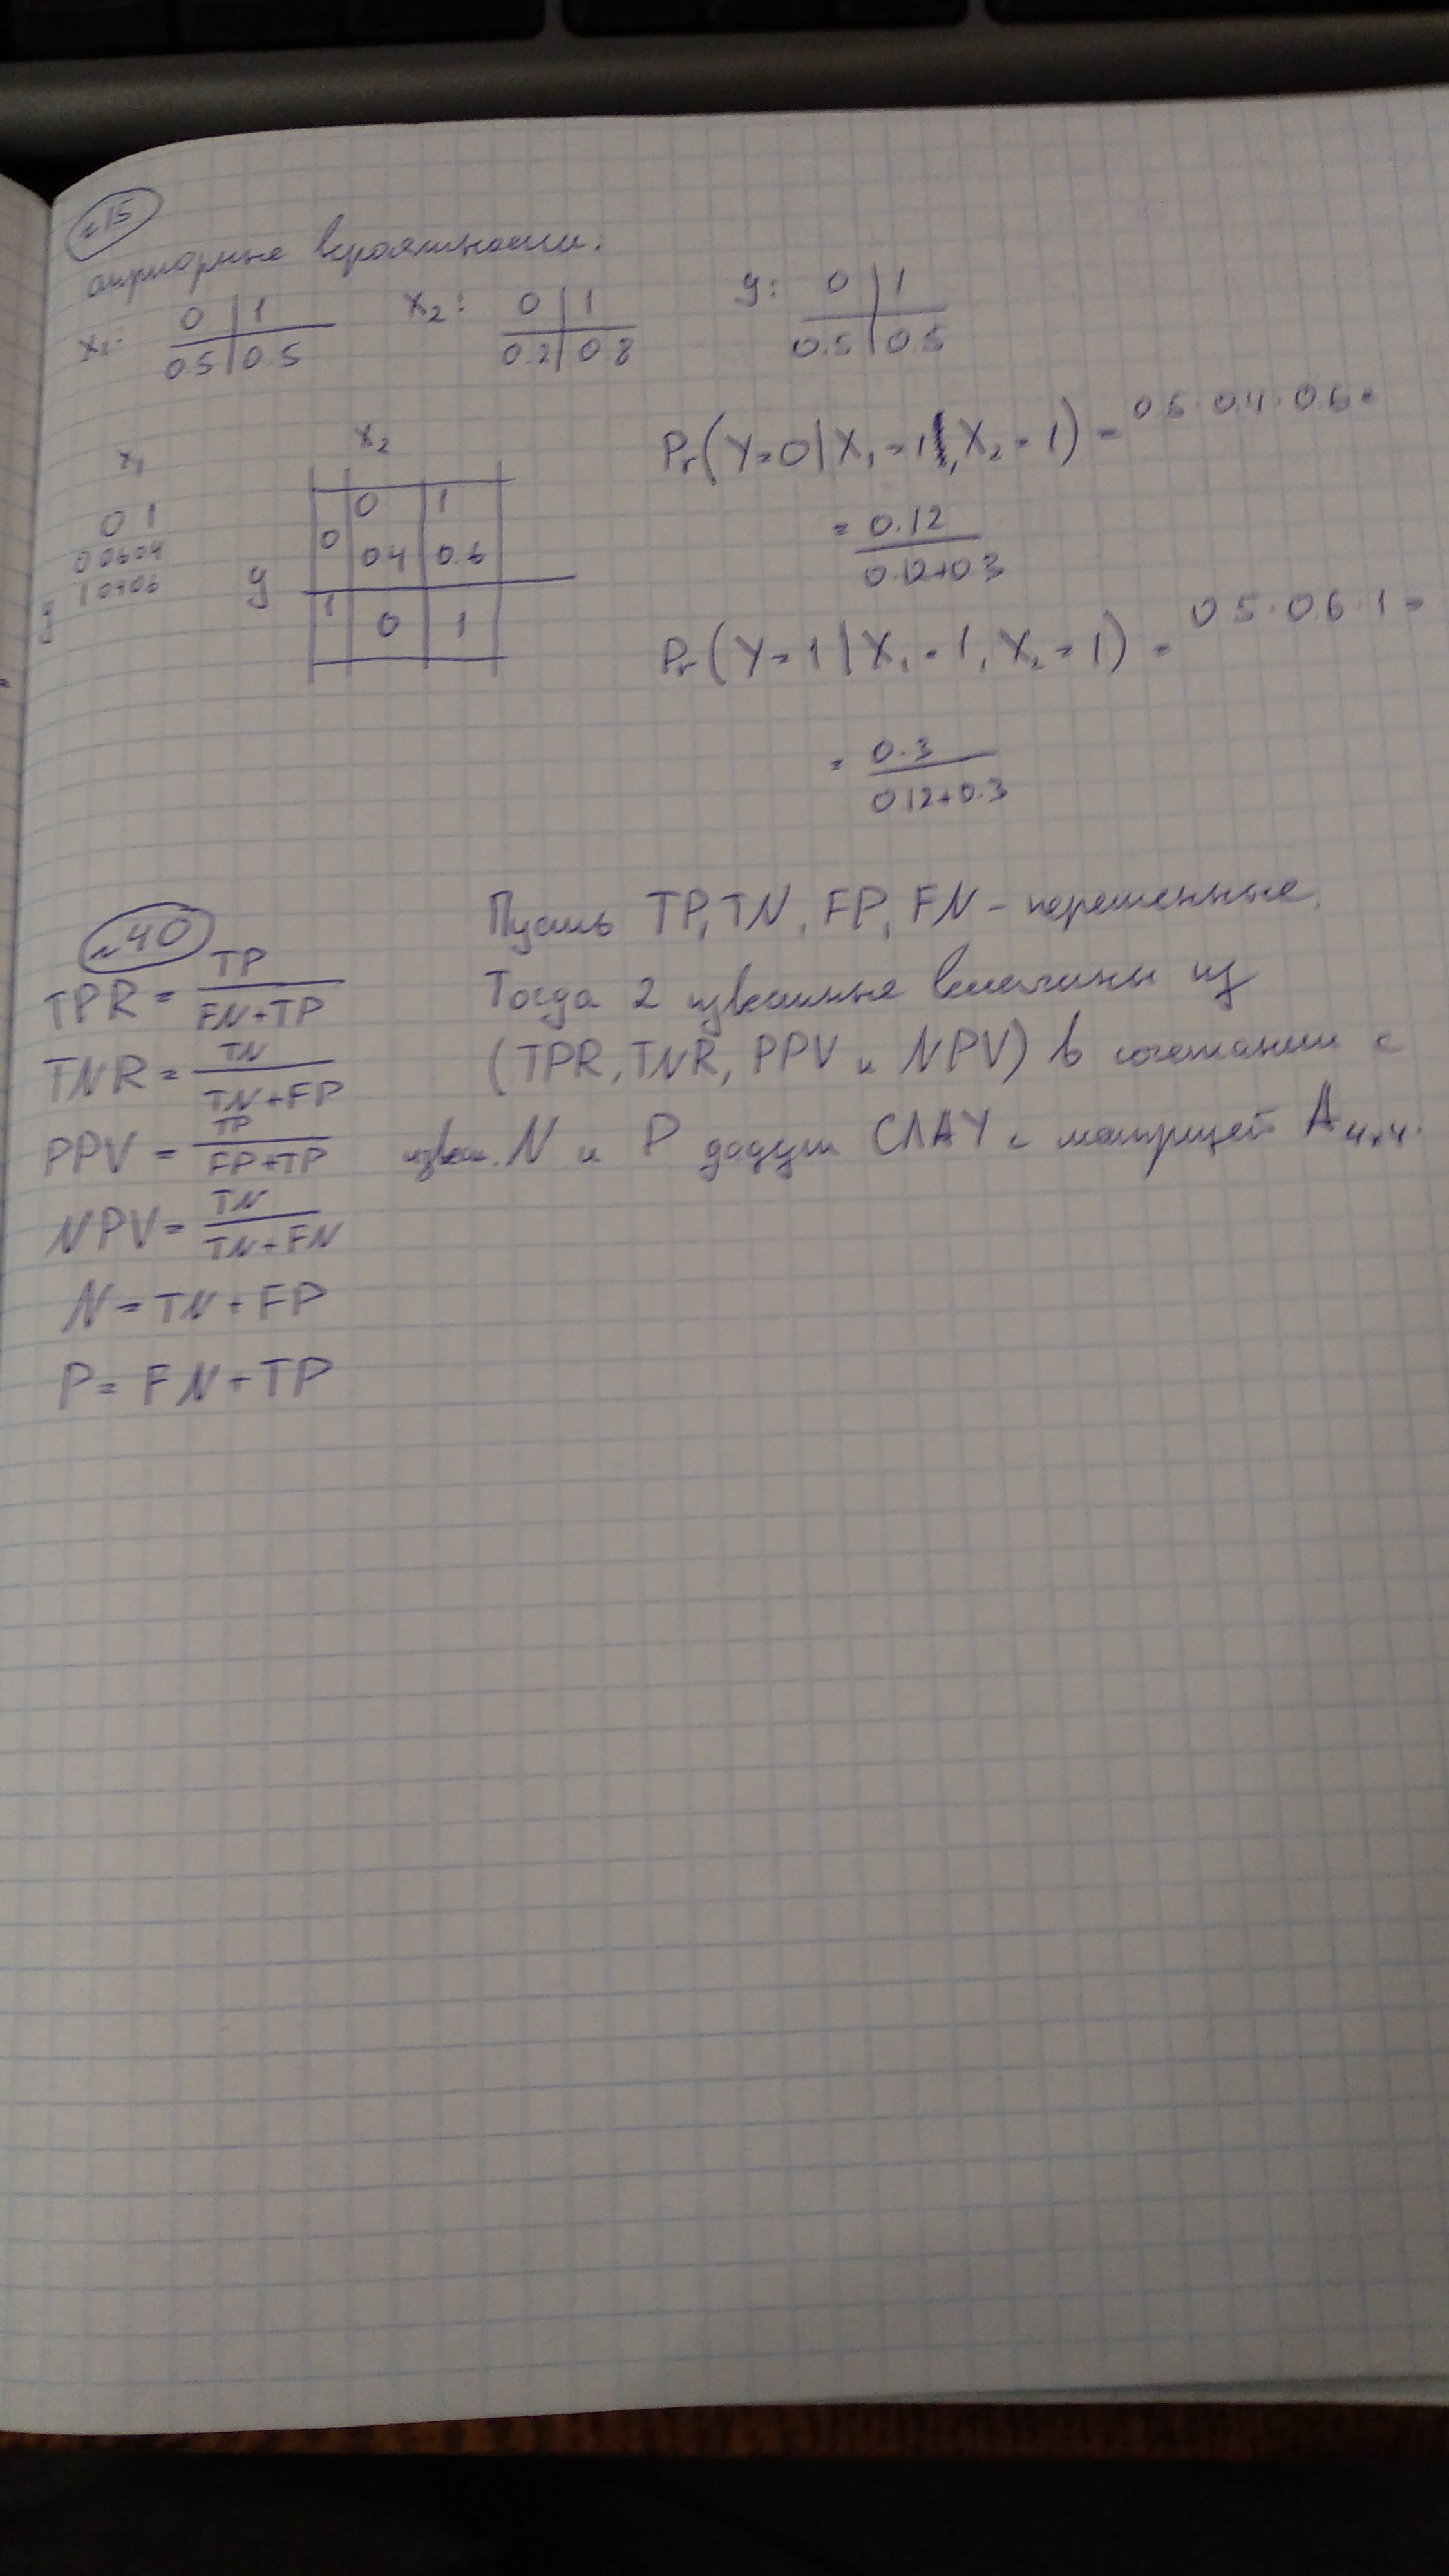 №15
априорные вероятности.
x₁: 0 | 1 x₂: 0 | 1 y: 0 | 1
0.5 | 0.5 0.2 | 0.8 0.5 | 0.5
x₁ x₂
0 1 0 1
0 0.6 0.4 0 0.4 0.6
y 1 0.4 0.6 y 1 0 1
Pr(Y=0|X₁=1, X₂=1) = 0.5·0.4·0.6=
= 0.12 / 0.12+0.3
Pr(Y=1|X₁=1, X₂=1) = 0.5·0.6·1=
= 0.3 / 0.12+0.3
№40
TPR = TP / FN+TP
TNR = TN / TN+FP
PPV = TP / FP+TP
NPV = TN / TN+FN
N = TN+FP
P = FN+TP
Пусть TP, TN, FP, FN - переменные.
Тогда 2 известные величины из
(TPR, TNR, PPV и NPV) в сочетании с
извест. N и P дадут СЛАУ с матрицей A₄ₓ₄.